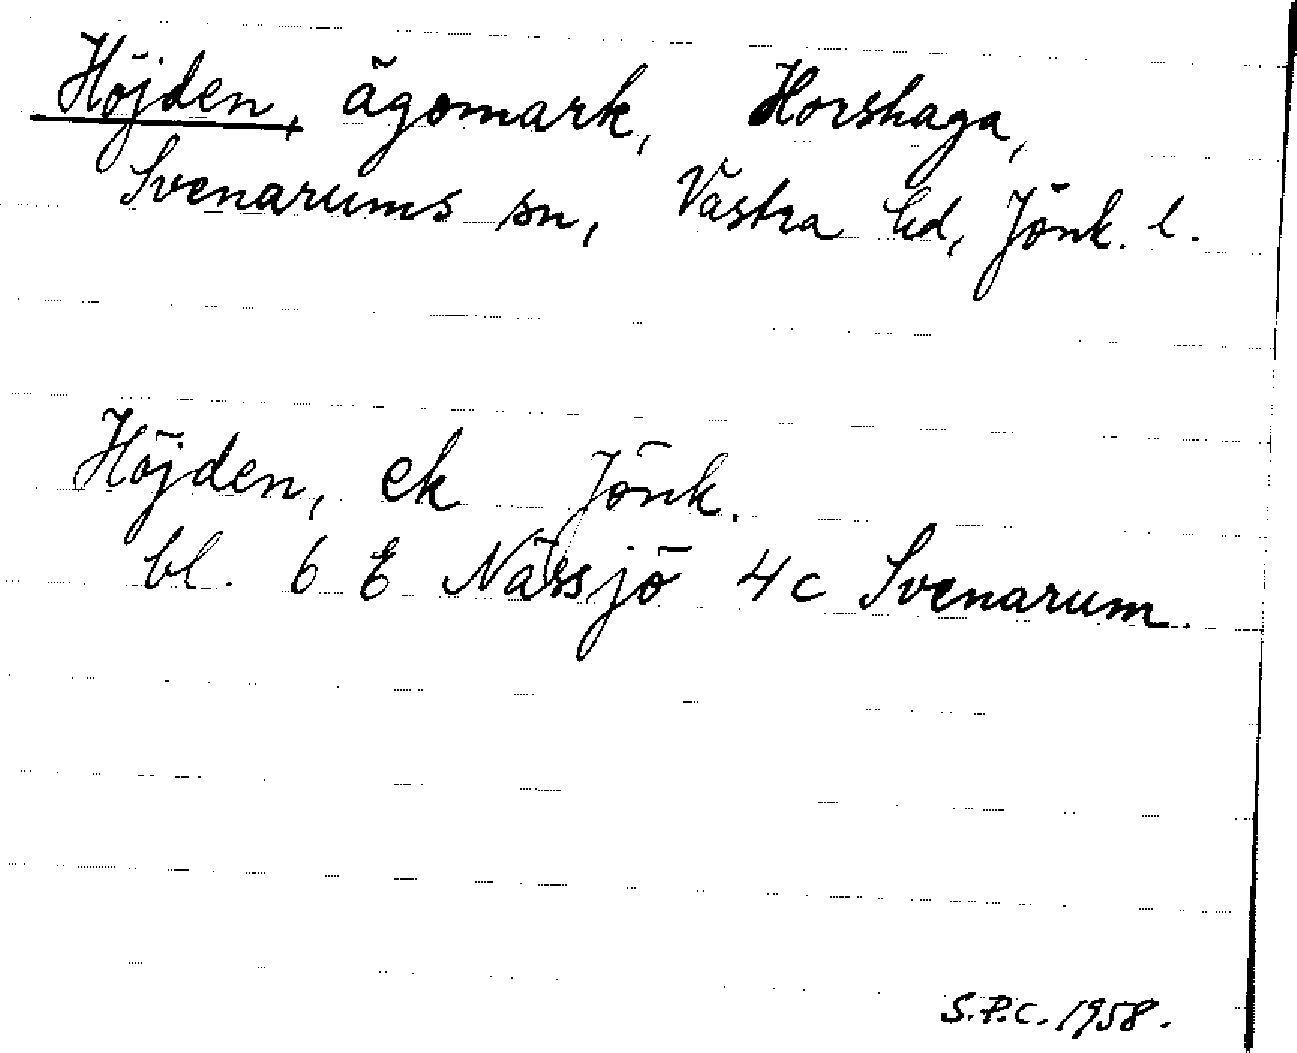 Höjden, ägomark, Horshaga,
Svenarums sn, Västra hd, Jönk. l.
Höjden, ek Jönk.
bl. 6 E Nässjö 4c Svenarum.
S.P.C. 1958.